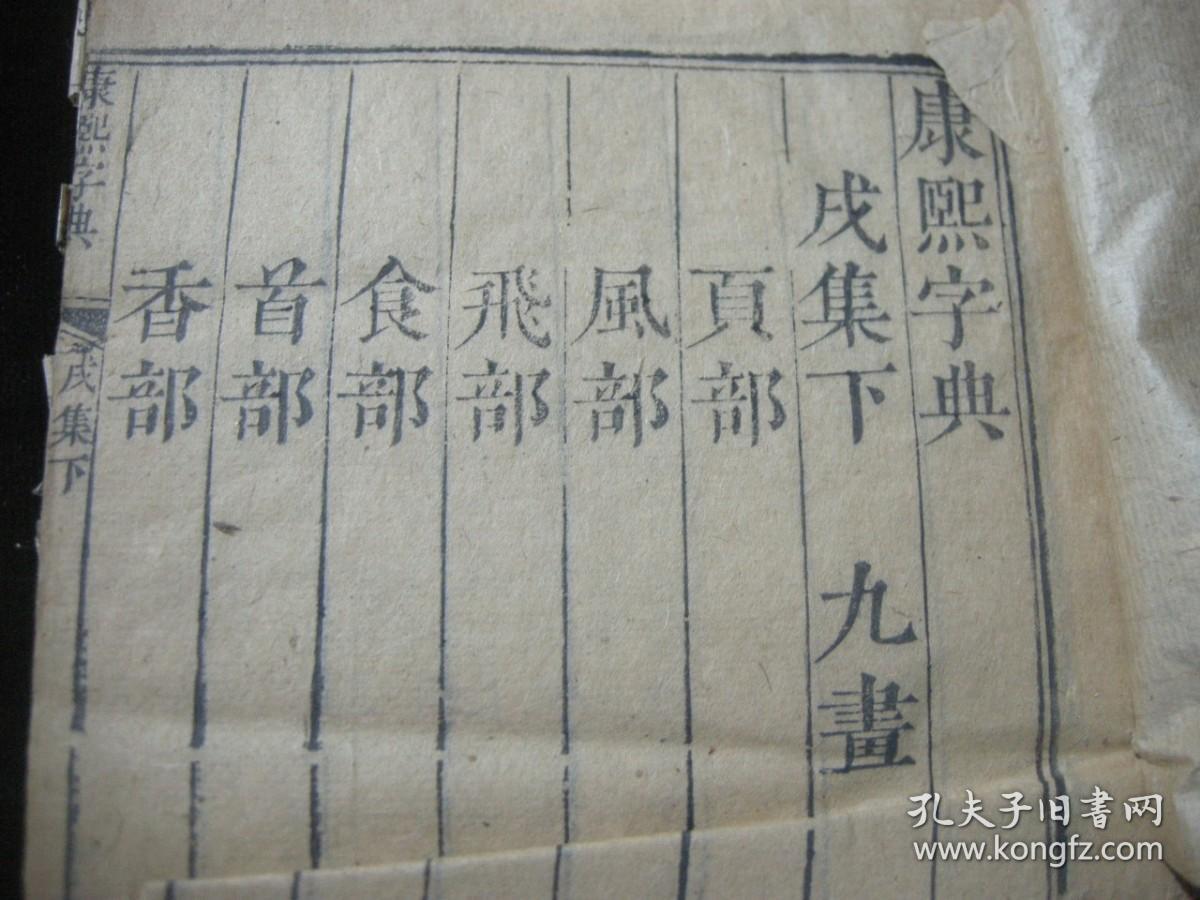 康熙字典
戌集下 九畫
頁部
風部
飛部
食部
首部
香部
康熙字典
戌集下
孔夫子旧书网
www.kongfz.com